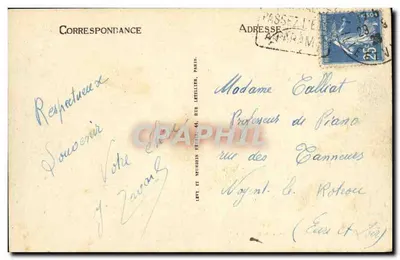 CORRESPONDANCE
ADRESSE
25
Respectueux
Souvenir
Votre
CPARAMA
LEVY ET NEURDEIN REUNIS, 44, RUE LETELLIER, PARIS
Madame Talliat
Professeur de Piano
rue des Tanneurs
Nogent le Rotrou
(Eure et Loir)